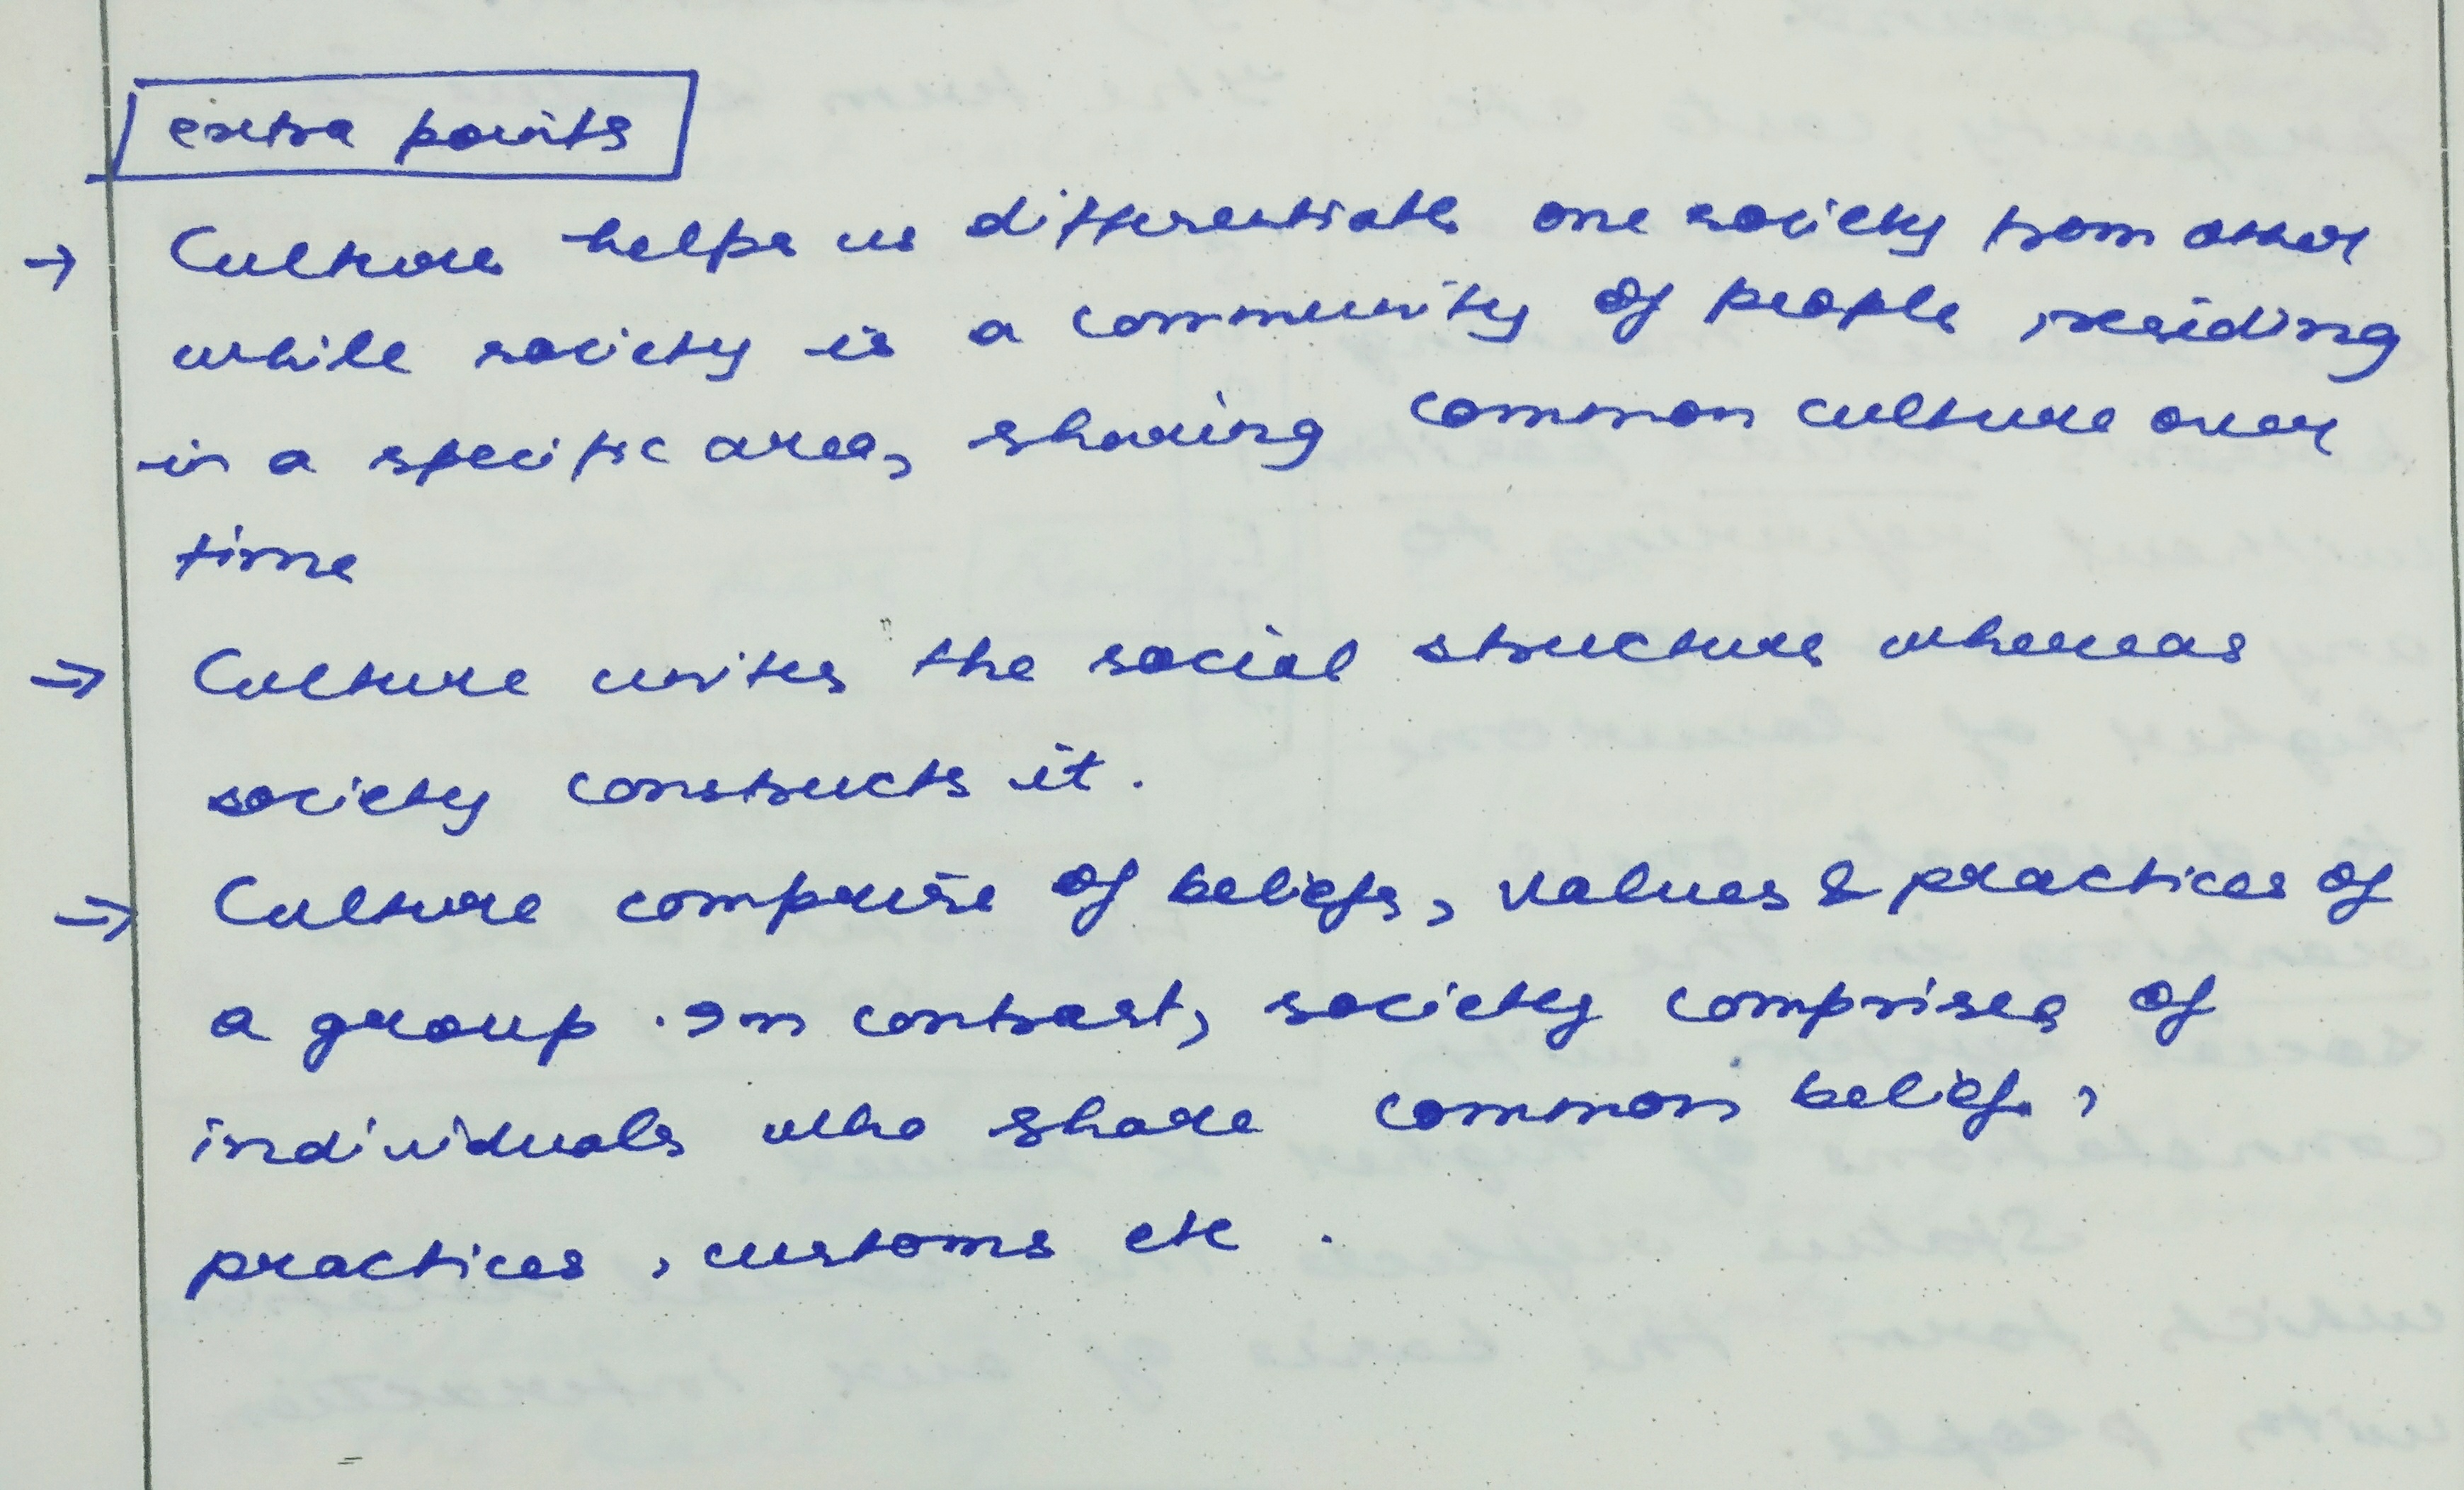 extra points
→ Culture helps us differentiate one society from other
while society is a community of people, residing
in a specific area, sharing common culture over
time
⇒ Culture unites the social structure whereas
society constructs it.
⇒ Culture comprise of beliefs, values & practices of
a group. In contrast, society comprises of
individuals who share common belief,
practices, customs etc.